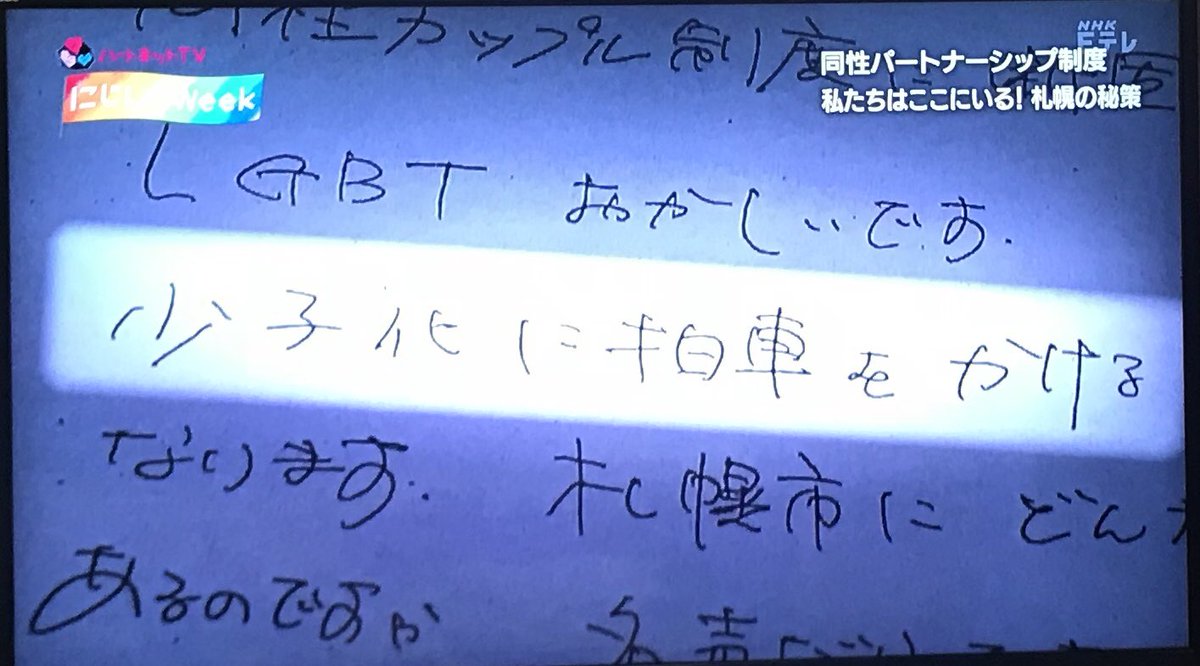 ハートネットTV
NHK
Eテレ
Week
同性パートナーシップ制度
私たちはここにいる!札幌の秘策
性カップル制度
LGBT おかしいです.
少子化に拍車をかける
なります. 札幌市にどん
あるのですか